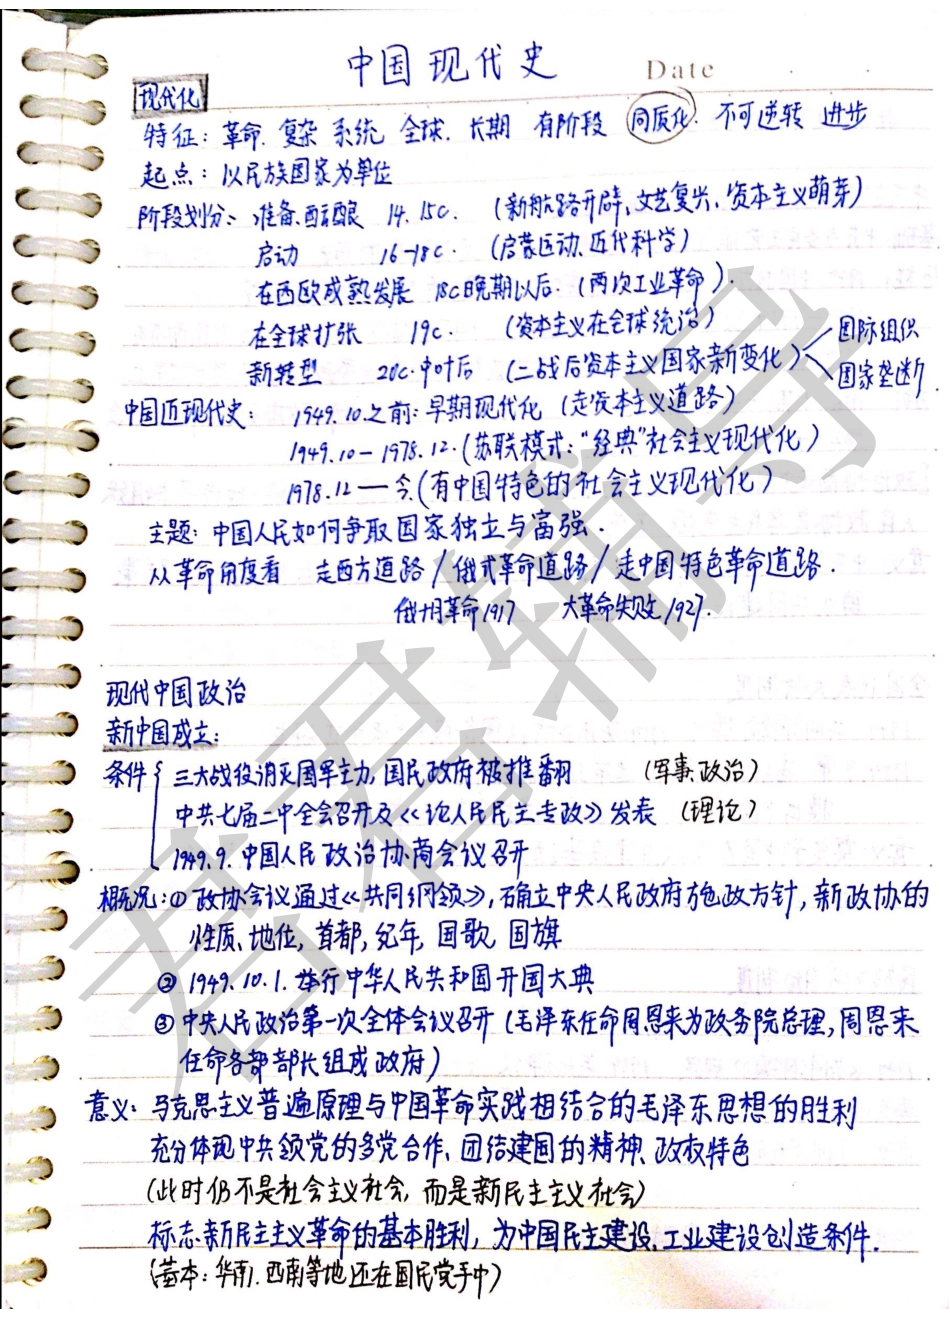 中国现代史 Date
现代化
特征：革命、复杂 系统 全球、长期 有阶段 同质化、不可逆转 进步
起点：以民族国家为单位
阶段划分： 准备、酝酿 14、15c. （新航路开辟、文艺复兴、资本主义萌芽）
启动 16-18c. （启蒙运动、近代科学）
在西欧成熟发展 18c晚期以后.（两次工业革命）.
在全球扩张 19c. （资本主义在全球统治）
新转型 20c.中叶后 （二战后资本主义国家新变化） 国际组织 国家垄断
中国近现代史： 1949.10之前：早期现代化（走资本主义道路）
1949.10—1978.12.（苏联模式：“经典”社会主义现代化）
1978.12 — 今（有中国特色的社会主义现代化）
主题：中国人民如何争取国家独立与富强.
从革命角度看 走西方道路/俄式革命道路/走中国特色革命道路.
俄十月革命1917 大革命失败1927.
现代中国政治
新中国成立：
条件 三大战役消灭国军主力，国民政府被推翻 （军事、政治）
中共七届二中全会召开及《论人民民主专政》发表 （理论）
1949.9.中国人民政治协商会议召开
概况：① 政协会议通过《共同纲领》，确立中央人民政府施政方针，新政协的
性质、地位，首都，纪年，国歌，国旗
② 1949.10.1.举行中华人民共和国开国大典
③ 中央人民政治第一次全体会议召开（毛泽东任命周恩来为政务院总理，周恩来
任命各部部长组成政府）
意义：马克思主义普遍原理与中国革命实践相结合的毛泽东思想的胜利
充分体现中共领党的多党合作、团结建国的精神、政权特色
（此时仍不是社会主义社会，而是新民主主义社会）
标志新民主主义革命的基本胜利，为中国民主建设、工业建设创造条件.
（基本：华南、西南等地还在国民党手中）
君君辅导